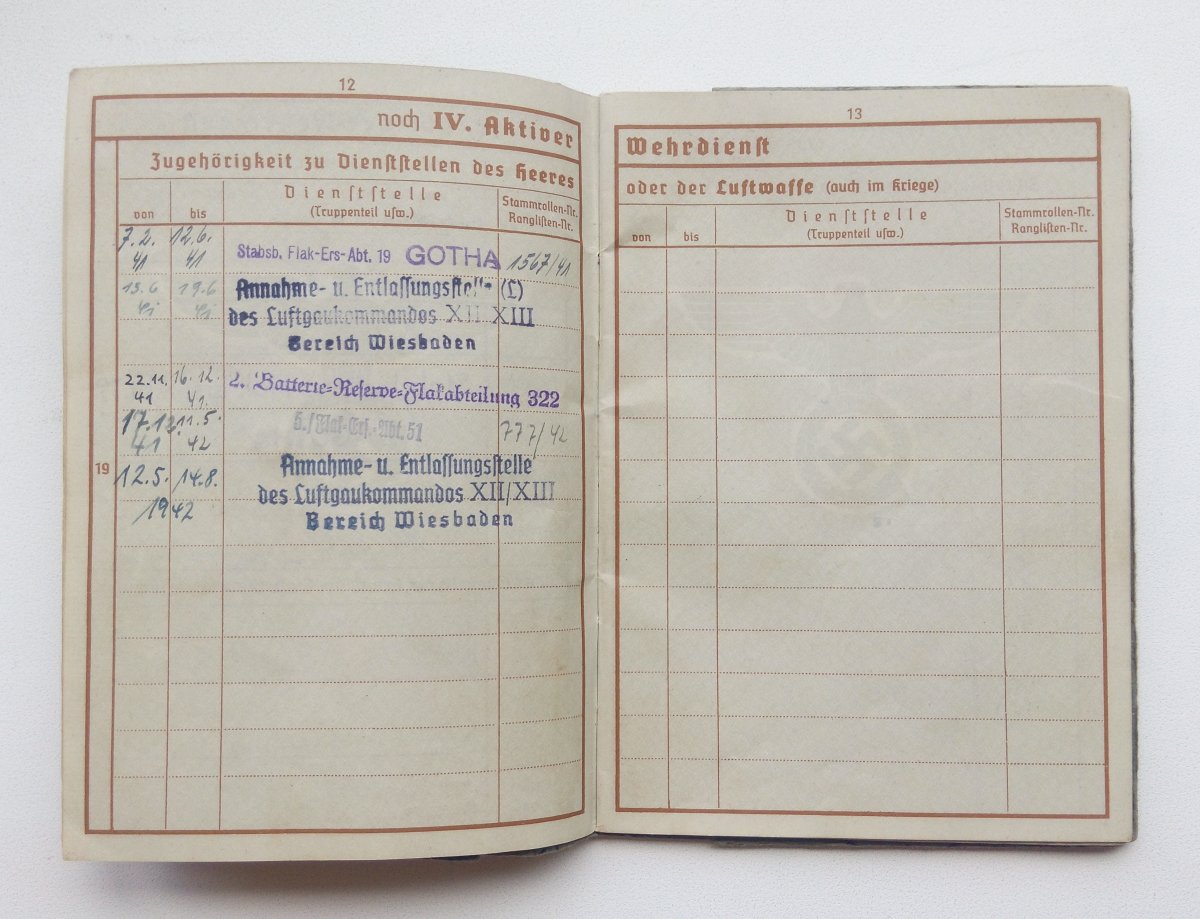 12
noch IV. Aktiver
Zugehörigkeit zu Dienststellen des Heeres
von
bis
Dienststelle
(Truppenteil usw.)
Stammrollen-Nr.
Ranglisten-Nr.
7.2. 12.6.
41 41
Stabsb. Flak-Ers-Abt. 19 GOTHA 1567/41
13.6 19.6
41 41
Annahme- u. Entlassungsstelle (L)
des Luftgaukommandos XII XIII
Bereich Wiesbaden
22.11. 16.12.
41 41.
2. Batterie-Reserve-Flakabteilung 322
17.12. 11.5.
41 42
5./Flak-Ers.-Abt. 51 777/42
19
12.5. 14.8.
1942
Annahme- u. Entlassungsstelle
des Luftgaukommandos XII/XIII
Bereich Wiesbaden
13
Wehrdienst
oder der Luftwaffe (auch im Kriege)
von
bis
Dienststelle
(Truppenteil usw.)
Stammrollen-Nr.
Ranglisten-Nr.